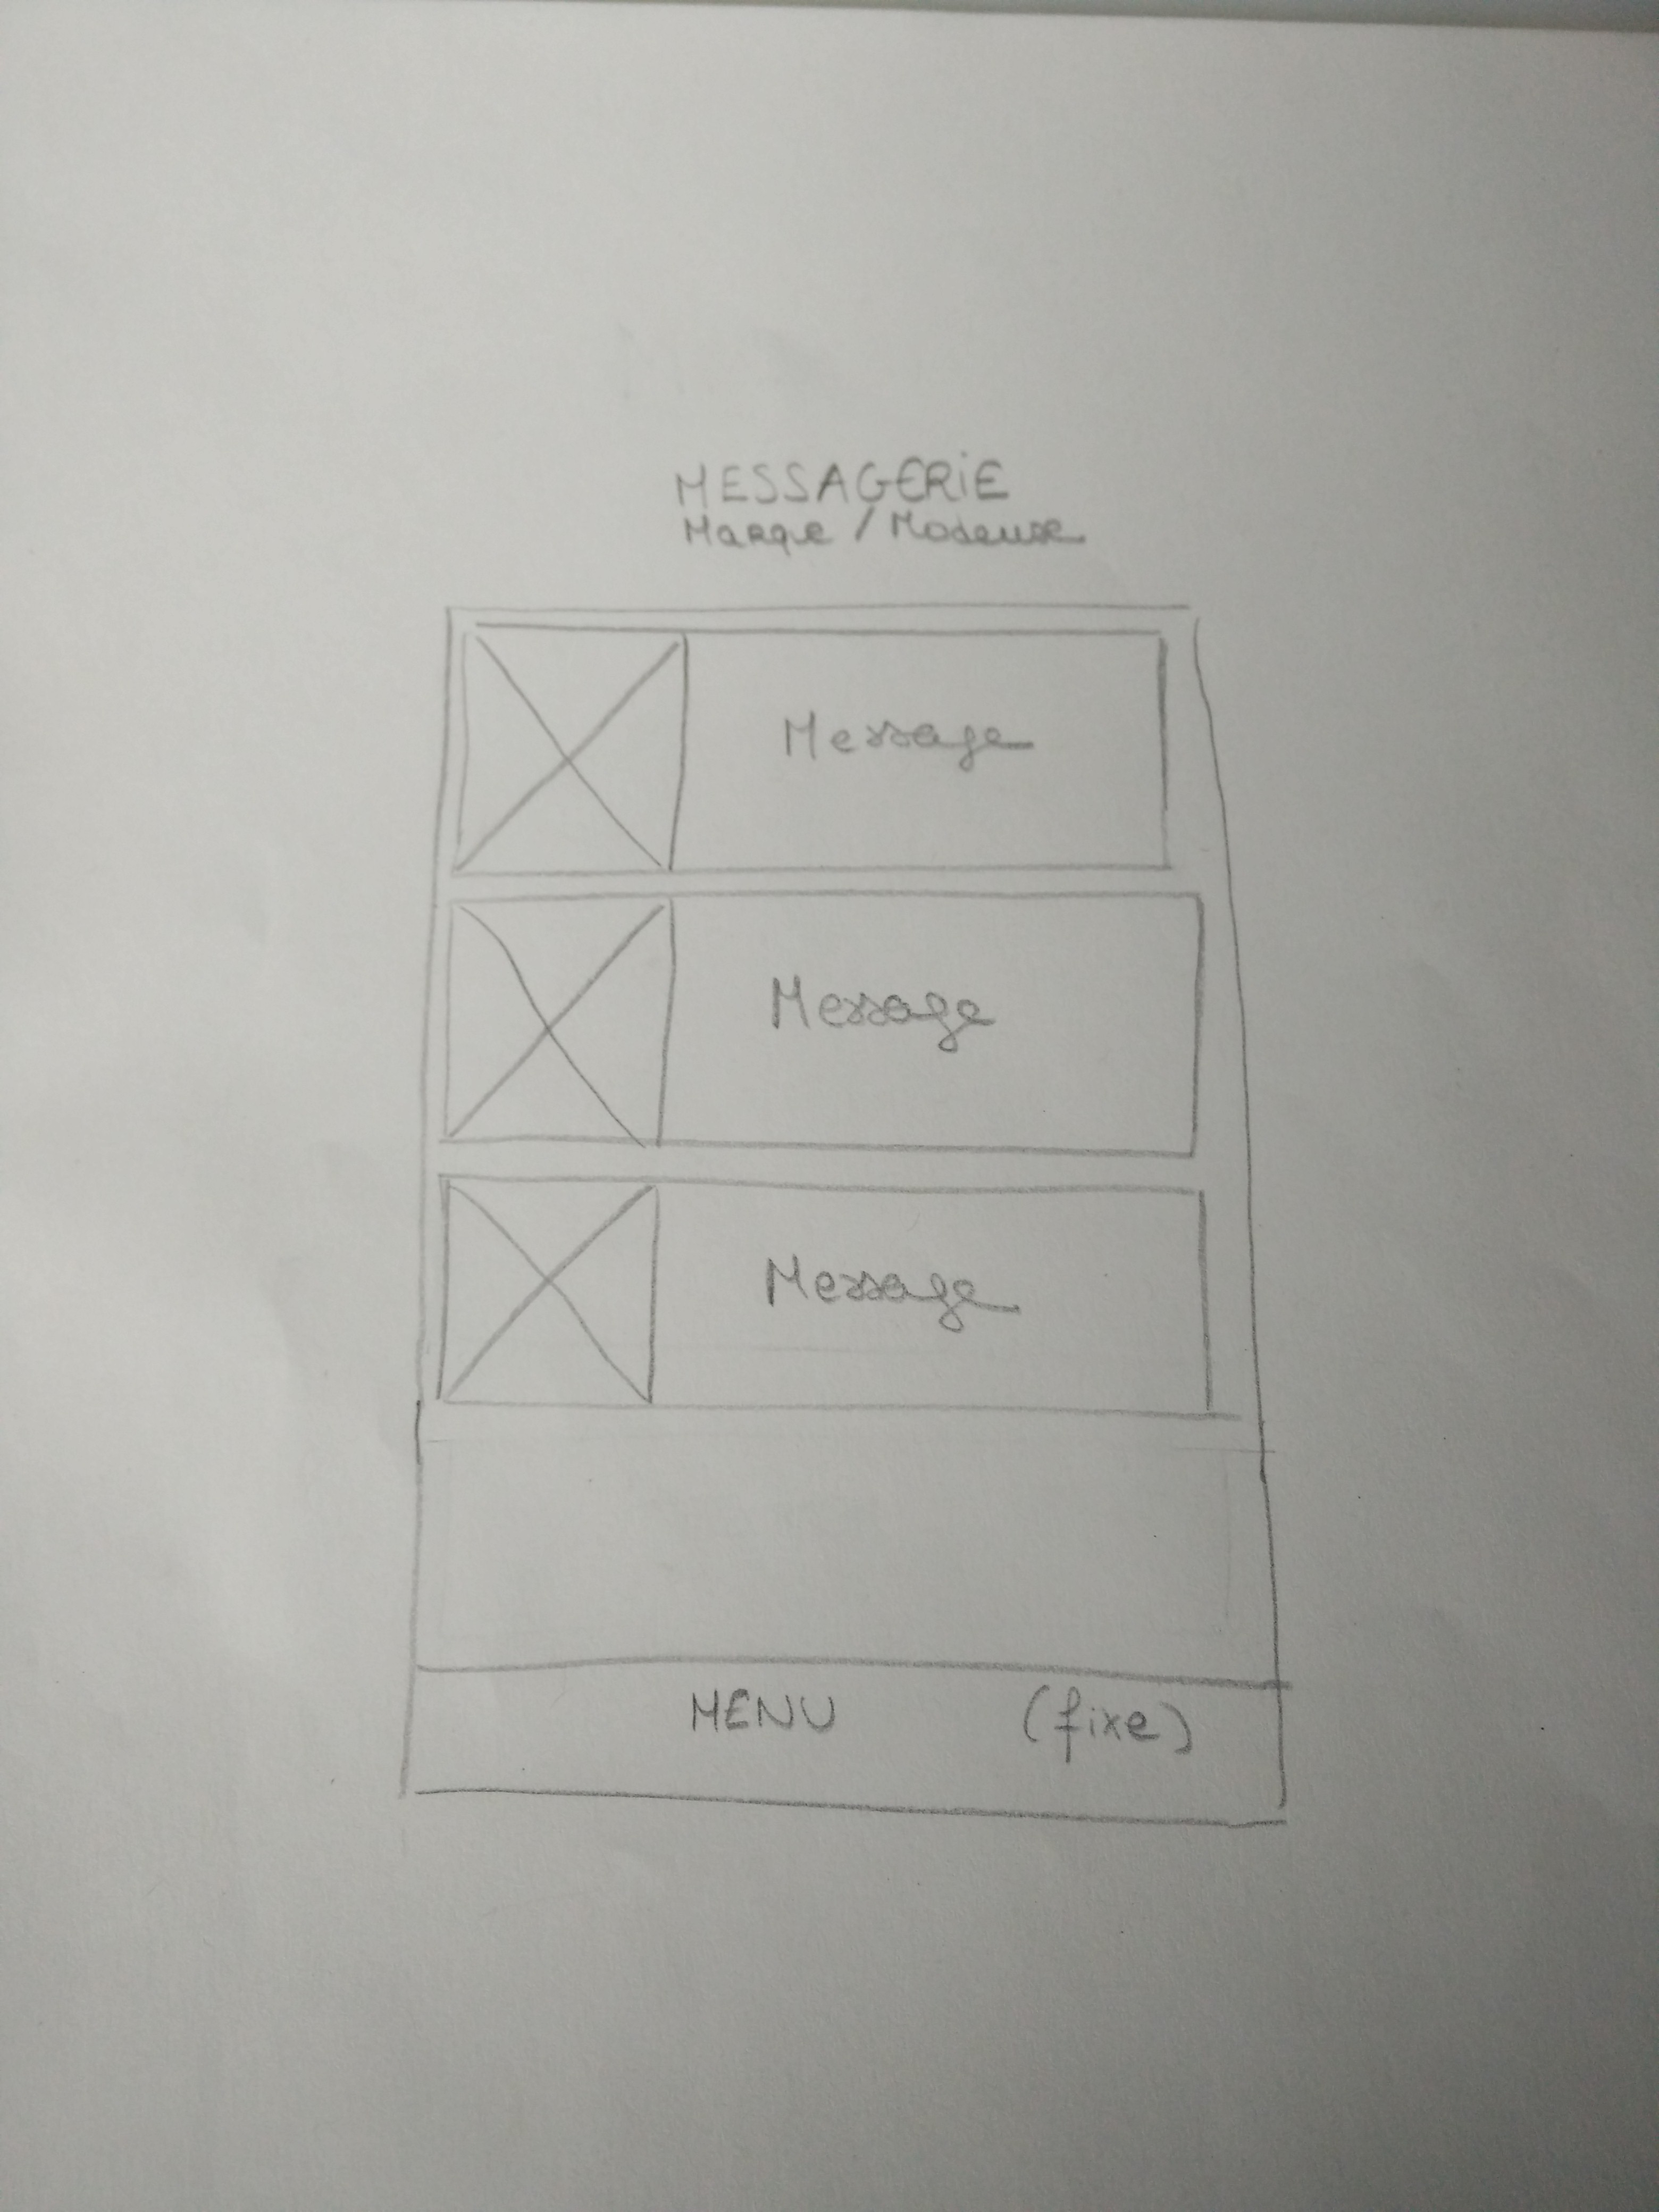 MESSAGERIE
Marque / Modeuse
Message
Message
Message
MENU (fixe)